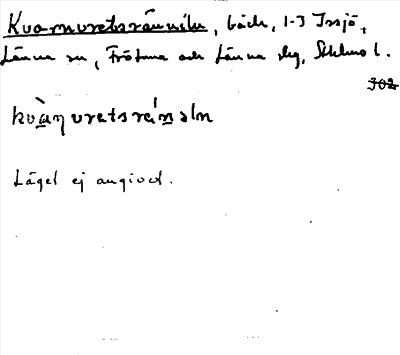 Kvarnuretsrännilen, bäck, 1-3 Insjö,
Länna sn, Frötuna och Länna skg, Sthlms l.
302
kvàṇ uretsrénsln
Läget ej angivet.